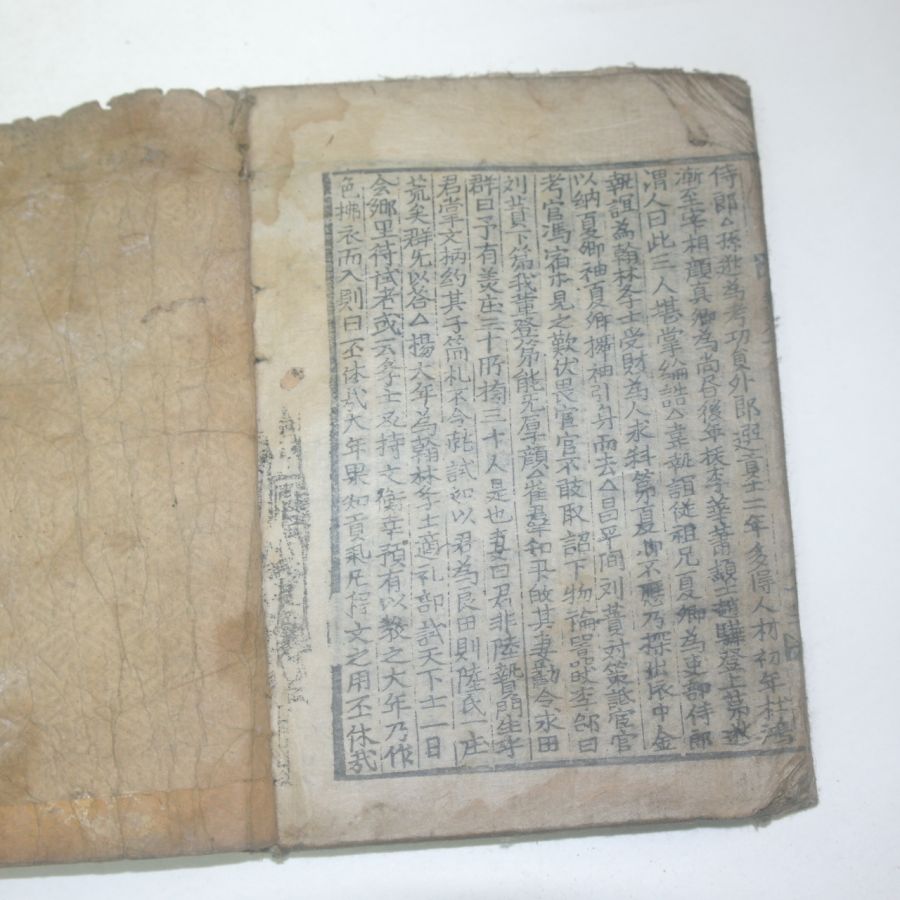 侍郎△孫逖為考功員外郎選貢士二年多得人材初年杜鴻
漸至宰相顔真卿為尚書後年抜李華蕭頴士趙驊登上第逖
謂人曰此三人堪掌綸誥△韋執誼従祖兄夏卿為吏部侍郎
執誼為翰林学士受財為人求科第夏卿不應乃探出㤙中金
以納夏卿袖夏卿擺袖引身而去△昌平間刘蕡対策詆宦官
考官馮宿木見之歎伏畏宦官不敢取詔下物論嚣然李郃曰
刘蕡下第我輩登第能无厚顔△崔羣知贡㪯其妻勸令求田
群曰予有美庄三十所搒三十人是也妻曰君非陸贄門生乎
君掌文柄約其子简礼不令就試如以君為良田則陸氏一庄
荒矣群无以答△揚大年為翰林学士適礼部試天下士一日
会鄉里待试者或云学士又持文衡幸預有以教之大年乃作
色拂衣而入則曰丕休㢤大年果知貢㪯凡程文之用丕休㢤